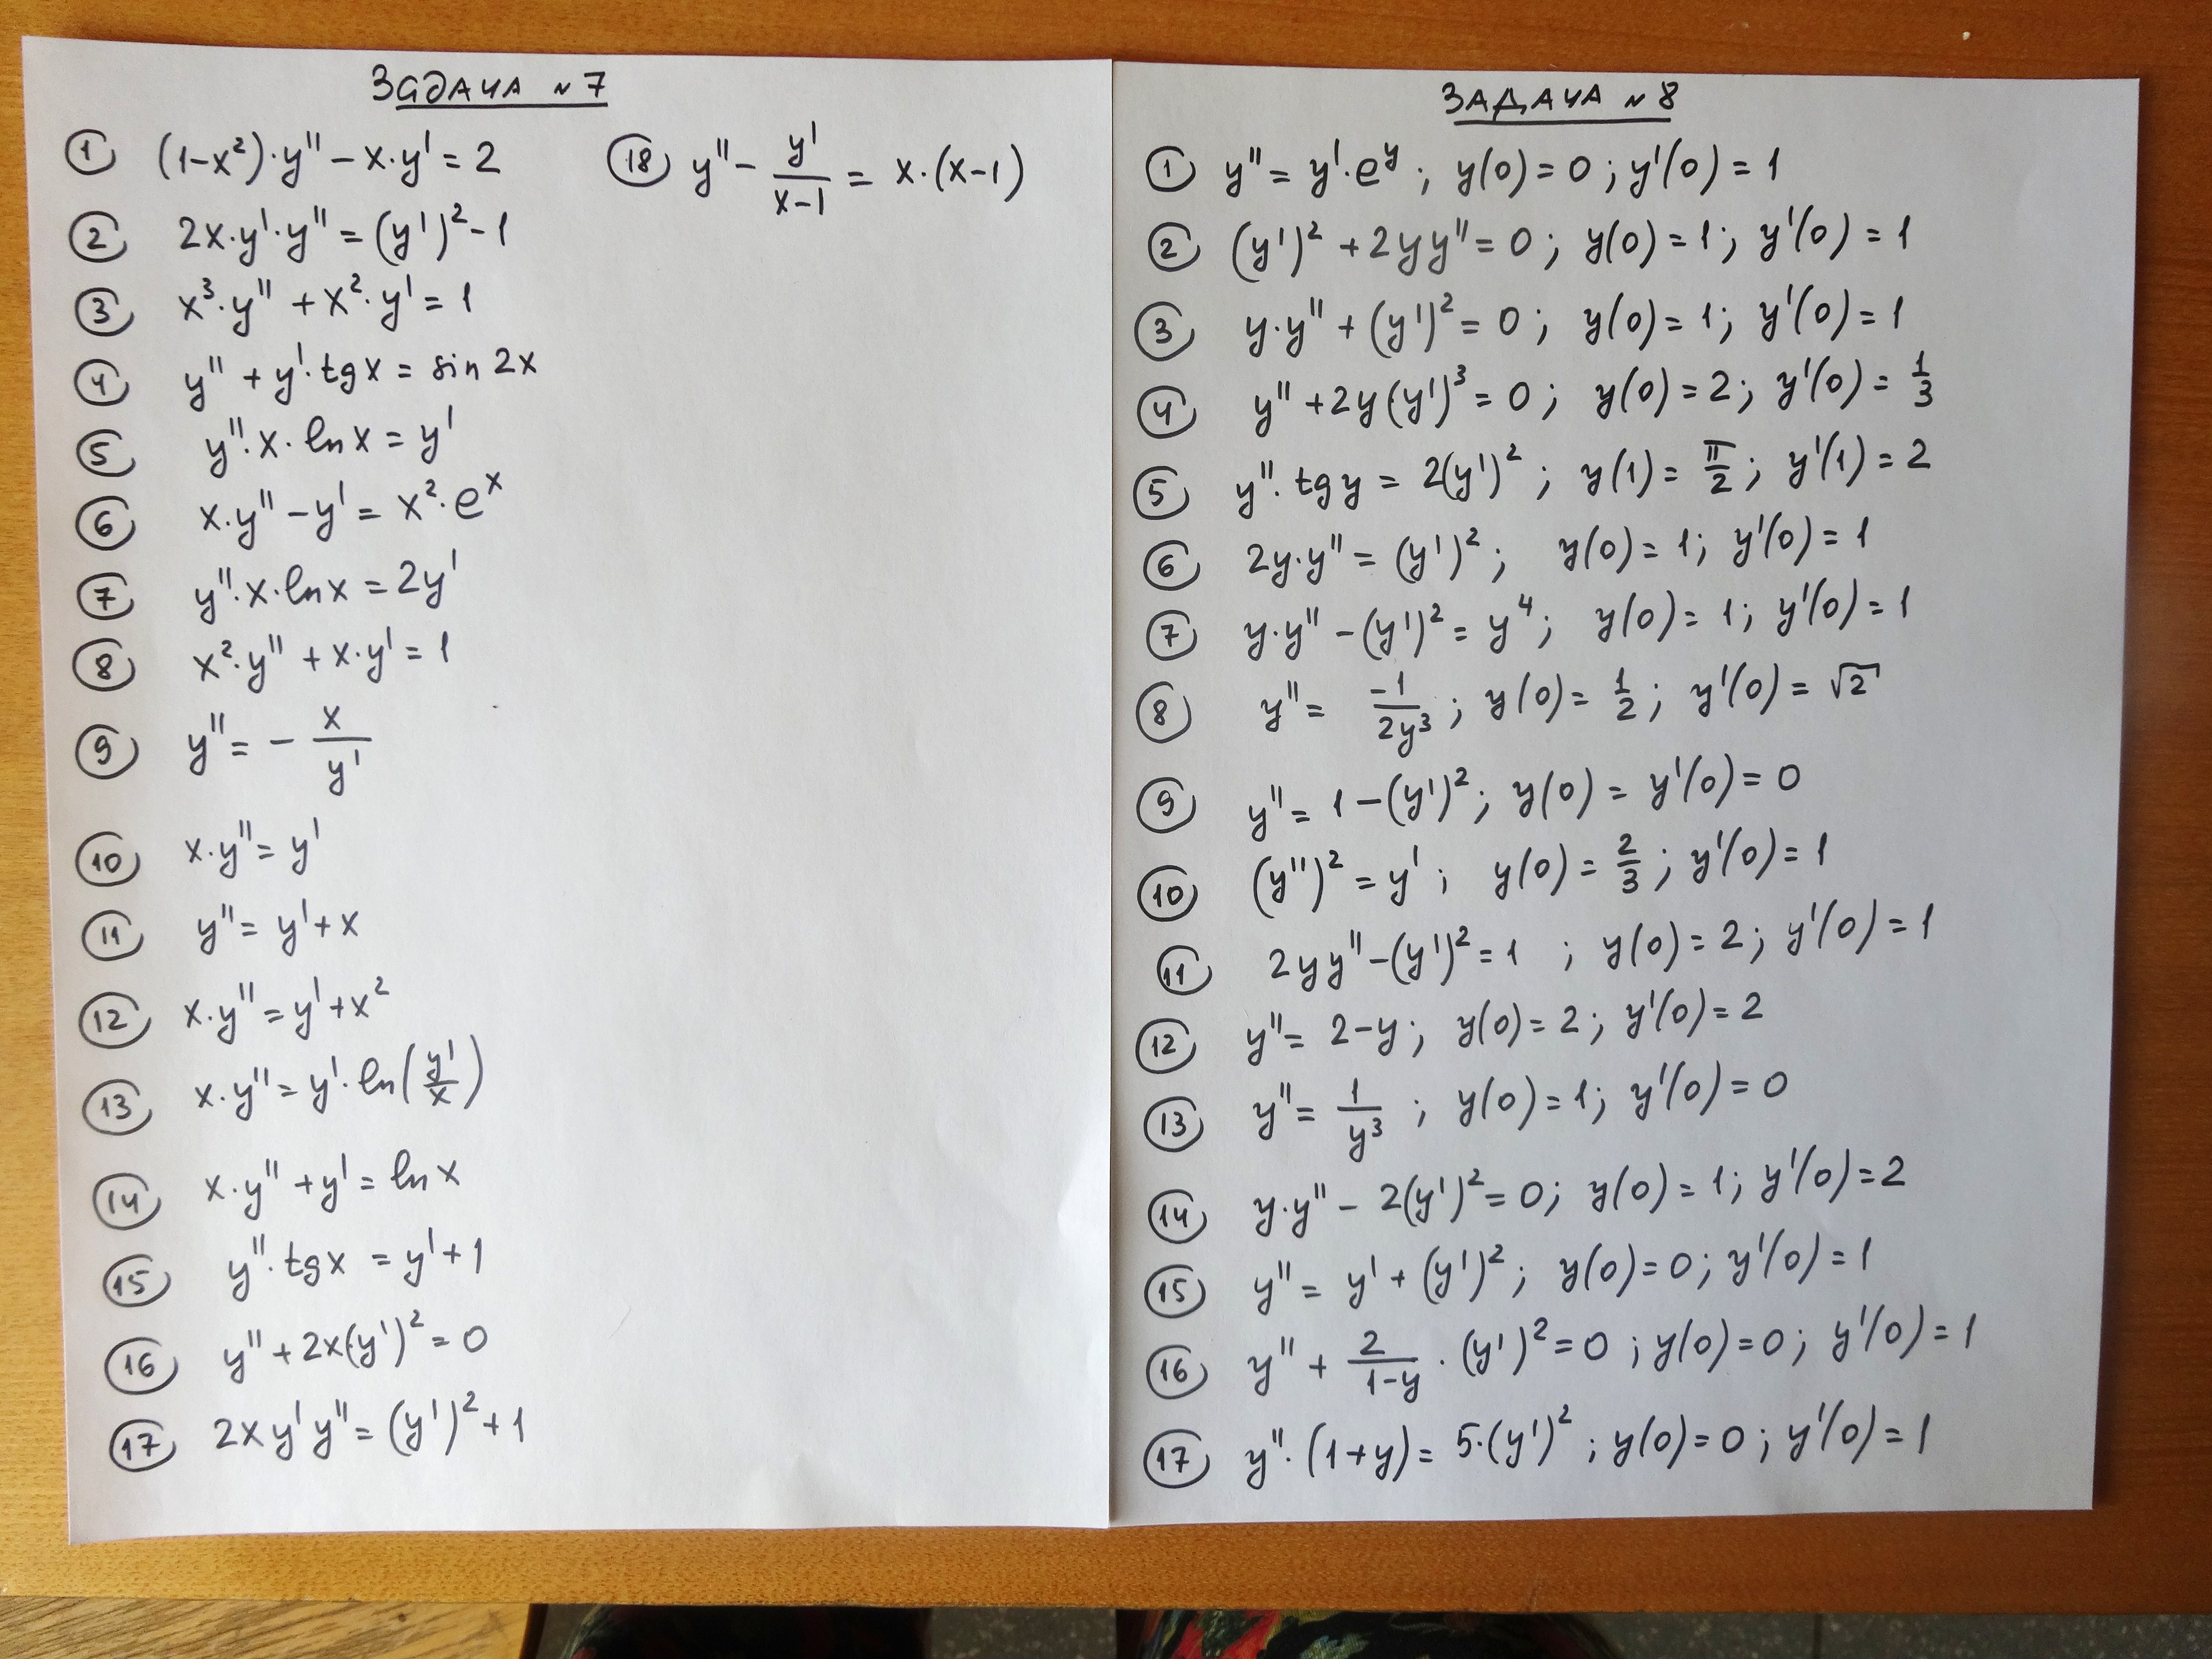 ЗАДАЧА №7
① (1-x²)·y'' - x·y' = 2
② 2x·y'·y'' = (y')² - 1
③ x³·y'' + x²·y' = 1
④ y'' + y'·tg x = sin 2x
⑤ y''·x·ln x = y'
⑥ x·y'' - y' = x²·eˣ
⑦ y''·x·ln x = 2y'
⑧ x²·y'' + x·y' = 1
⑨ y'' = - x/y'
⑩ x·y'' = y'
⑪ y'' = y' + x
⑫ x·y'' = y' + x²
⑬ x·y'' = y'·ln(y'/x)
⑭ x·y'' + y' = ln x
⑮ y''·tg x = y' + 1
⑯ y'' + 2x(y')² = 0
⑰ 2x y' y'' = (y')² + 1
⑱ y'' - y'/(x-1) = x·(x-1)
ЗАДАЧА №8
① y'' = y'·eʸ; y(0) = 0; y'(0) = 1
② (y')² + 2yy'' = 0; y(0) = 1; y'(0) = 1
③ y·y'' + (y')² = 0; y(0) = 1; y'(0) = 1
④ y'' + 2y(y')³ = 0; y(0) = 2; y'(0) = 1/3
⑤ y''·tg y = 2(y')²; y(1) = π/2; y'(1) = 2
⑥ 2y·y'' = (y')²; y(0) = 1; y'(0) = 1
⑦ y·y'' - (y')² = y⁴; y(0) = 1; y'(0) = 1
⑧ y'' = -1/2y³; y(0) = 1/2; y'(0) = √2
⑨ y'' = 1 - (y')²; y(0) = y'(0) = 0
⑩ (y'')² = y'; y(0) = 2/3; y'(0) = 1
⑪ 2yy'' - (y')² = 1; y(0) = 2; y'(0) = 1
⑫ y'' = 2 - y; y(0) = 2; y'(0) = 2
⑬ y'' = 1/y³; y(0) = 1; y'(0) = 0
⑭ y·y'' - 2(y')² = 0; y(0) = 1; y'(0) = 2
⑮ y'' = y' + (y')²; y(0) = 0; y'(0) = 1
⑯ y'' + 2/(1-y)·(y')² = 0; y(0) = 0; y'(0) = 1
⑰ y''·(1+y) = 5·(y')²; y(0) = 0; y'(0) = 1